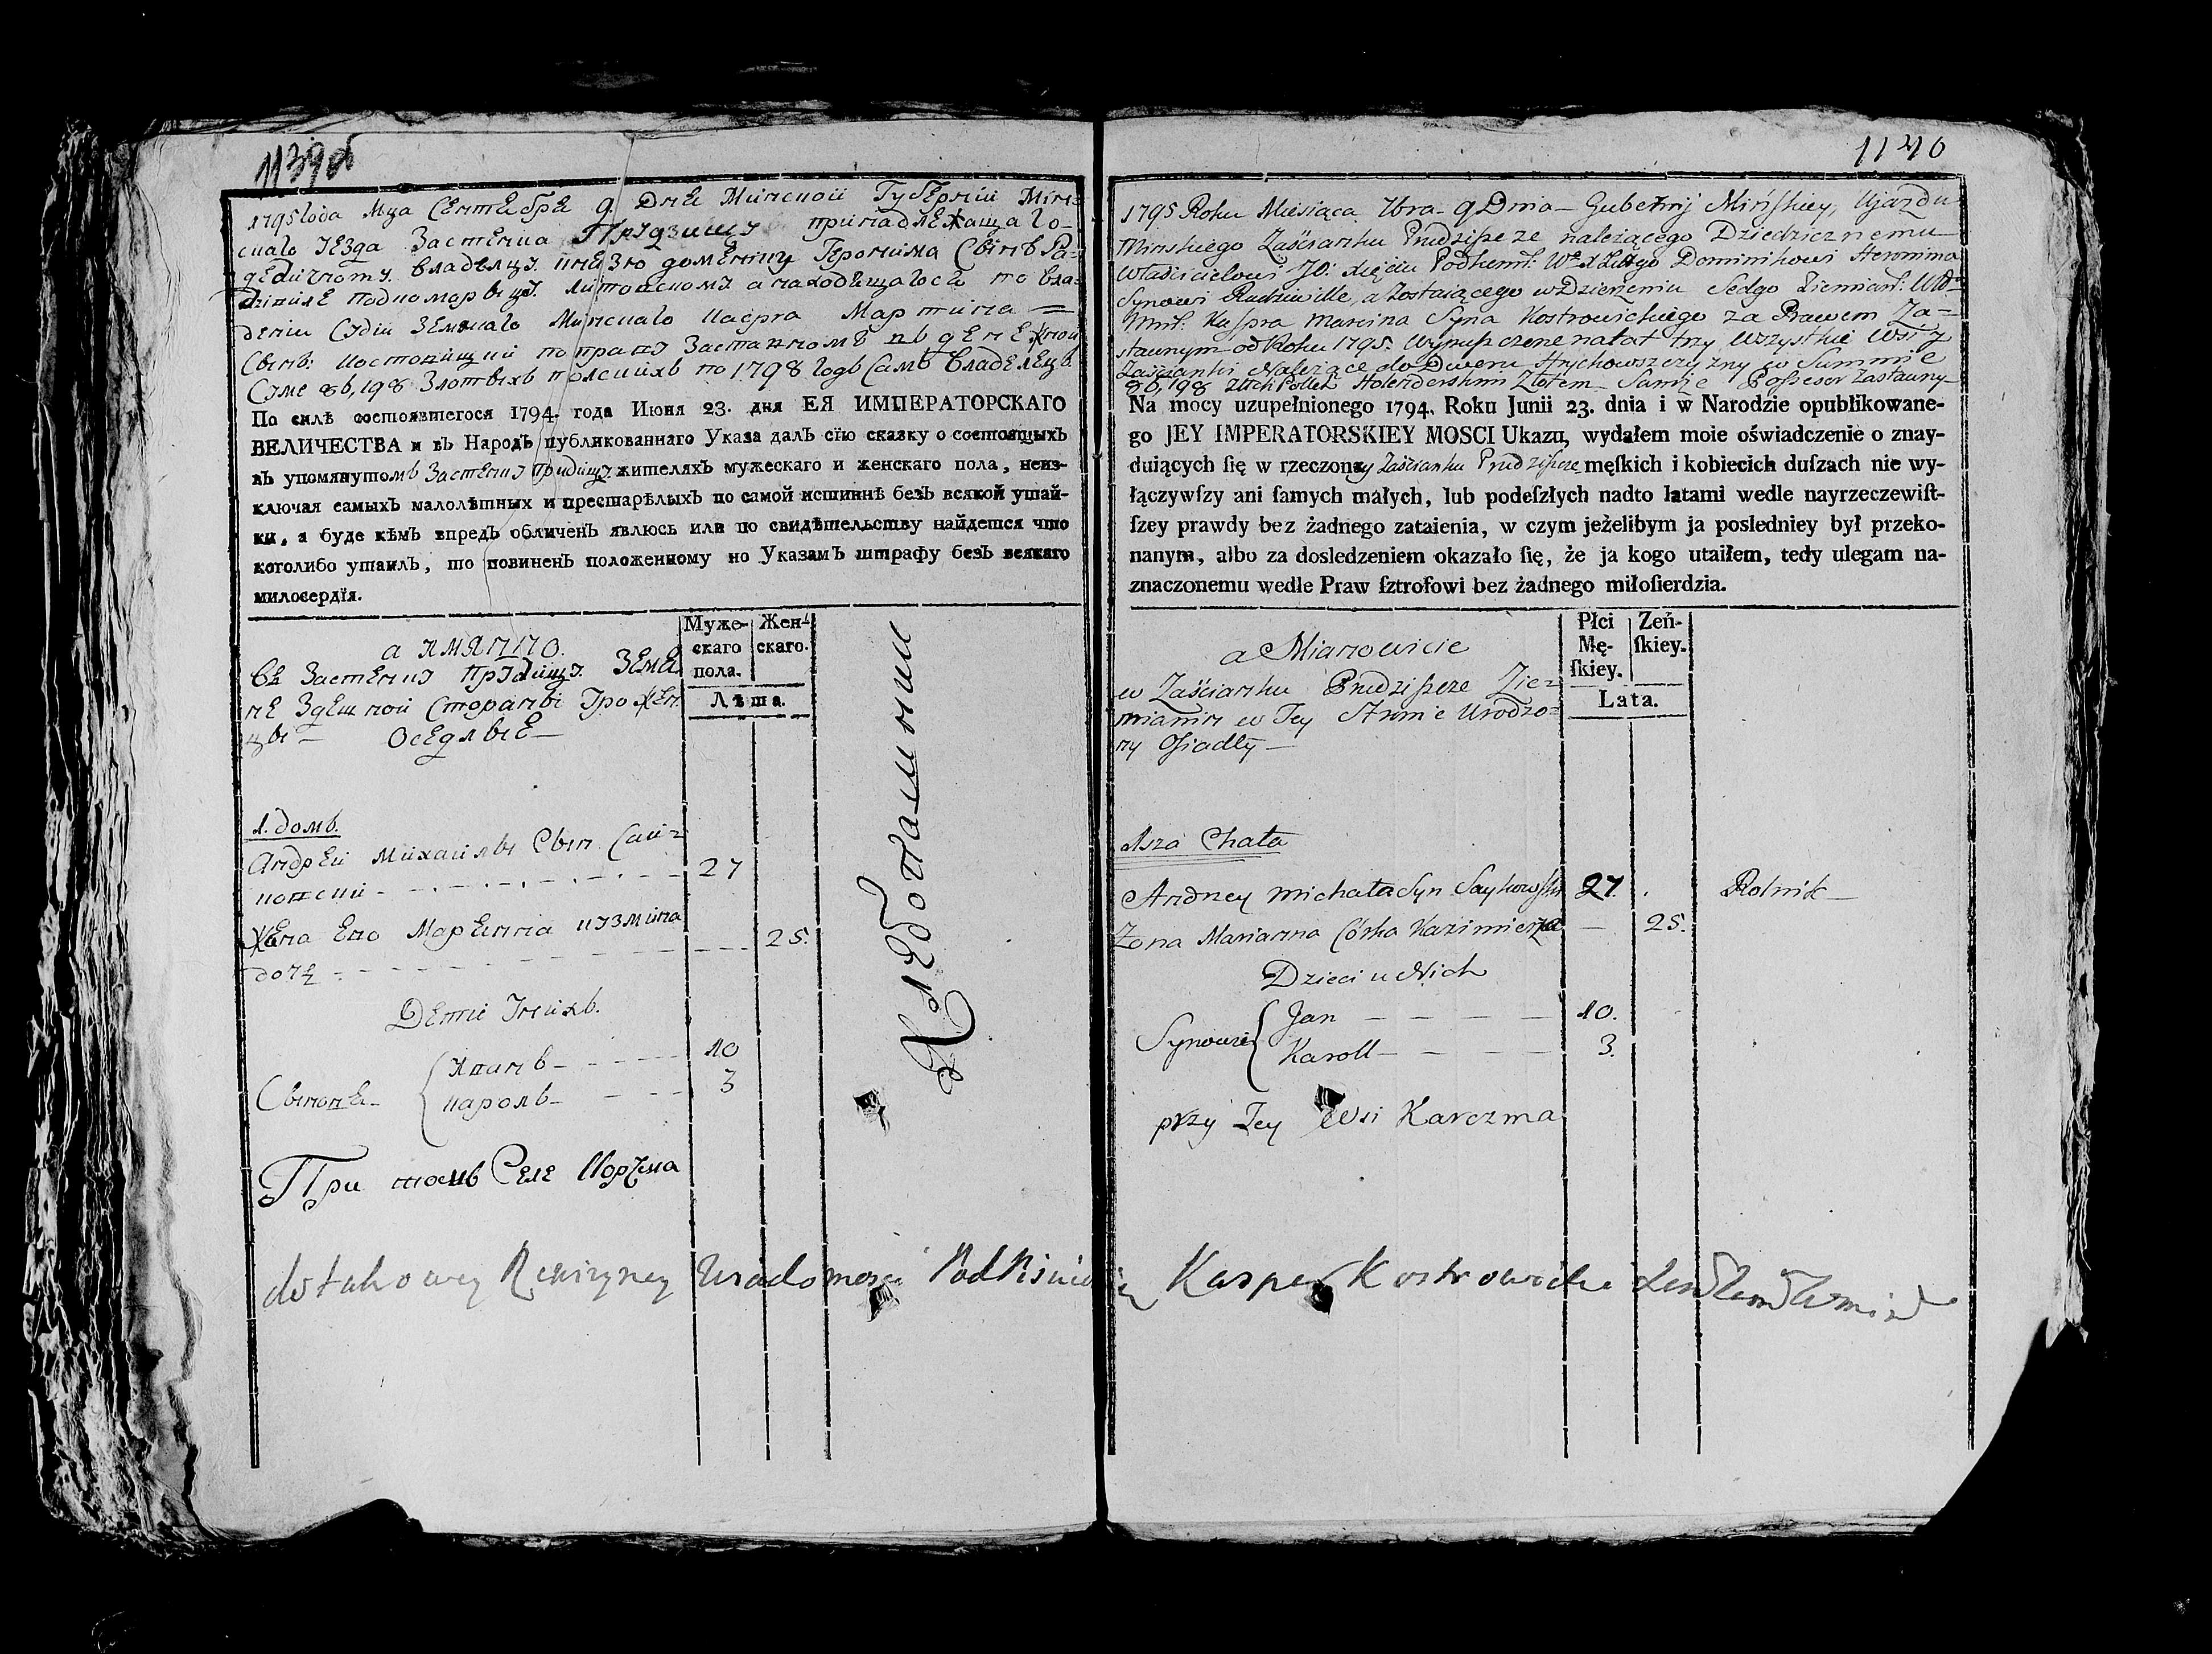 1139об
1795 года Мца Сентебре 9. Дне Минской Губерніи Мин-
скаго уезда Застенка Прудзищу принадлежащаго
Владелцу князю Доменику Геронима Сынъ Ра-
подкоморыцу Литовскому а находещагося по вла-
дении Судіи Земскаго Минскаго Каспра Мартина
Сынъ: Костровицкий по праву Заставномъ
Суме 86,198 Злотыхъ полскихъ по 1798 годъ Самъ Владелецъ
По силѣ состоявшегося 1794. года Июня 23. дня ЕЯ ИМПЕРАТОРСКАГО
ВЕЛИЧЕСТВА и въ Народъ публикованнаго Указа далъ сїю сказку о состоящыхъ
въ упомянутомъ Застенку Прудищу жителяхъ мужескаго и женскаго пола, неиз-
ключая самыхъ малолѣтныхъ и престарѣлыхъ по самой истиннѣ безъ всякой утай-
ки, а буде кѣмъ впредъ обличенъ явлюсь или по свидѣтельству найдется что
коголибо утаилъ, то повиненъ положенному по Указамъ штрафу безъ всякаго
милосердїя.
Муже- Жен-
скаго скаго.
пола.
Лѣта.
а имянно.
въ Застенку Прудищу. Земя
не Здешной Стораны Урожен
цы — Оседлые —
1. домъ.
Андрей Михайлы Сын Сай-
ковский 27
Жена Его Марьянна Кузмина
дочь 25.
Дети У нихъ.
Сыновье Иванъ 10
Кароль 3
При томъ Селе Корчма
Хлебопашный
1140
1795 Roku Miesiąca 7bra. 9 Dnia — Gubernij Mińskiey, Ujazdu
Minskiego Zaścianku Prudziszcze należącego Dziedzicznemu
Władścicielowi JO: Xięciu Podkomł: Wo X Littgo Dominikowi Heronima
Synowi Radziwille, a Zostaiącego w Dzierżeniu Sedgo Ziemiań: Wd
Mńs: Kaspra Marcina Syna Kostrowickiego za Prawem Za-
stawnym od Roku 1795. wypuszczone na lat trzy Wszystkie Wsi y
Zaścianki Należące do Dworu Hrychowszczyzny w Summie
86,198 Złtch Polch Holenderskim Złotem Samże Possesor Zastawny
Na mocy uzupełnionego 1794. Roku Junii 23. dnia i w Narodzie opublikowane-
go JEY IMPERATORSKIEY MOSCI Ukazu, wydałem moie oświadczenie o znay-
duiących ſię w rzeczony Zaścianku Prudziszcze męſkich i kobiecich duſzach nie wy-
łączywſzy ani ſamych małych, lub podeſzłych nadto latami wedle nayrzeczewiſt-
ſzey prawdy bez żadnego zataienia, w czym jeżelibym ja posledniey był przeko-
nanym, albo za dosledzeniem okazało ſię, że ja kogo utaiłem, tedy ulegam na-
znaczonemu wedle Praw ſztrofowi bez żadnego miłoſierdzia.
Płci Zeń-
Mę- ſkiey.
ſkiey.
Lata.
a Mianowicie
w Zaścianku Prudziszcze Zie-
mianin w Tey Stronie Urodzo-
ny Osiadły —
1sza Chata
Andrzey Michała Syn Saykowski 27. Rolnik —
Zona Marianna Córka Kazimierza 25.
Dzieci u Nich
Synowie Jan 10.
Karoll 3.
przy Tey Wsi Karczma
do takowey Rewizyney Wiadomosci Podpisuie się Kasper Kostrowicki